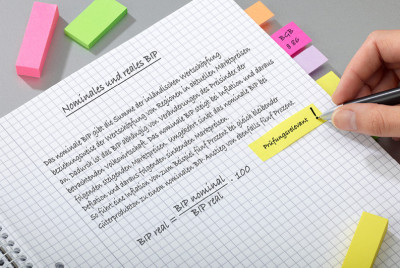 Nominales und reales BIP
Das nominale BIP gibt die Summe der inländischen Wertschöpfung
beziehungsweise der Wertschöpfung von Regionen in aktuellen Marktpreisen
an. Dadurch ist das BIP abhängig von Veränderungen des Preisindex der
betrachtenden Volkswirtschaft. Das nominale BIP steigt bei Inflation und daraus
folgenden steigenden Marktpreisen. Umgekehrt sinkt das nominale BIP bei
Deflation und daraus folgenden sinkenden Marktpreisen.
So führt eine Inflation von zum Beispiel fünf Prozent bei gleich bleibender
Güterproduktion zu einem nominalen BIP-Anstieg von ebenfalls fünf Prozent.
BIP real = BIP nominal / BIP real · 100
BGB
§ 26
Prüfungsrelevanz !